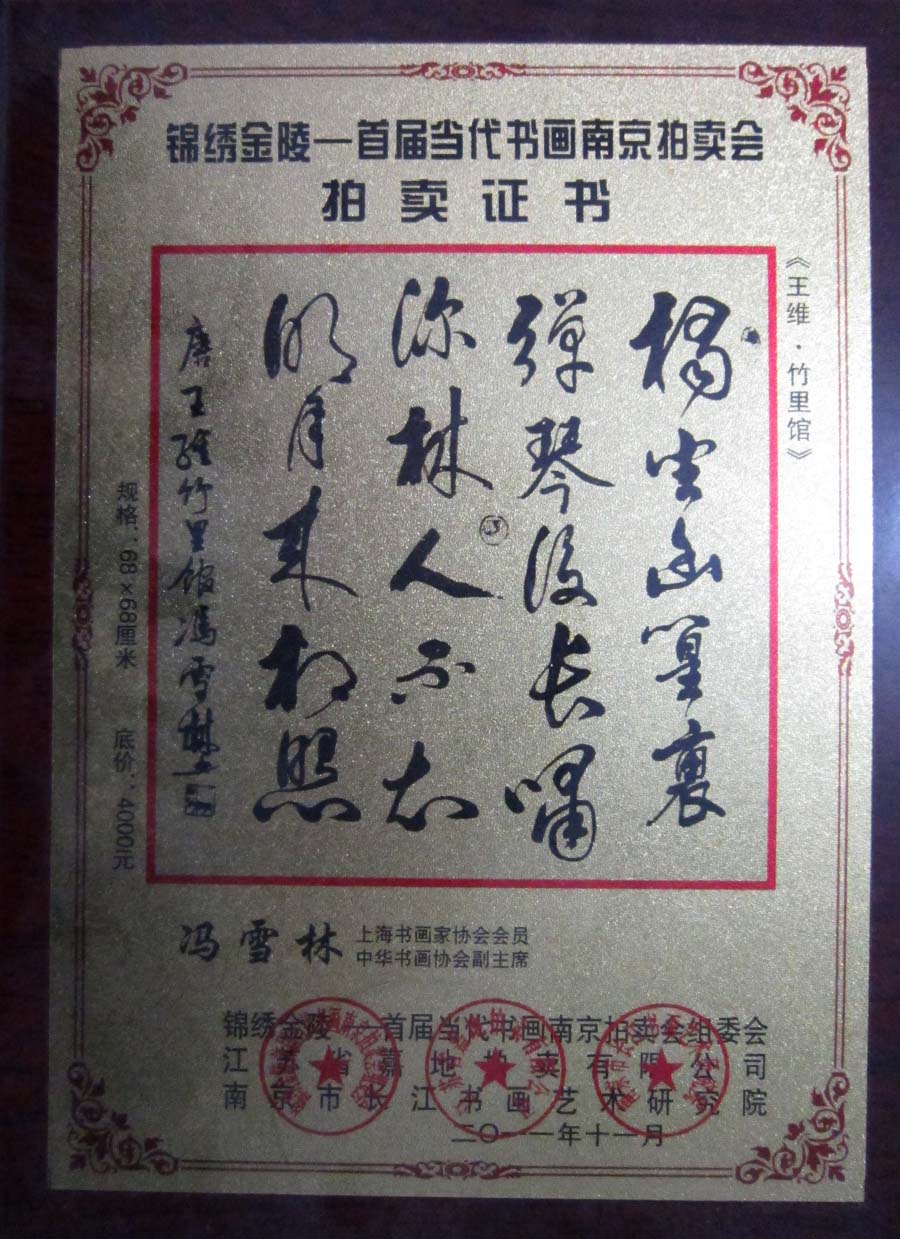 锦绣金陵—首届当代书画南京拍卖会
拍卖证书
《王维·竹里馆》
獨坐幽篁裏
彈琴復长嘯
深林人不知
明月来相照
唐王維竹里館馮雪林
规格：68×68厘米 底价：4000元
冯雪林
上海书画家协会会员
中华书画协会副主席
锦绣金陵—首届当代书画南京拍卖会组委会
江苏省嘉地拍卖有限公司
南京市长江书画艺术研究院
二〇一一年十一月